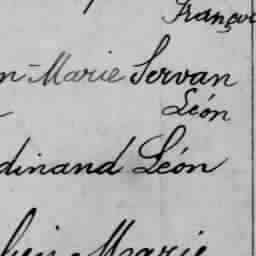 Françoi
n-Marie Servan
Léon
dinand Léon
Marie